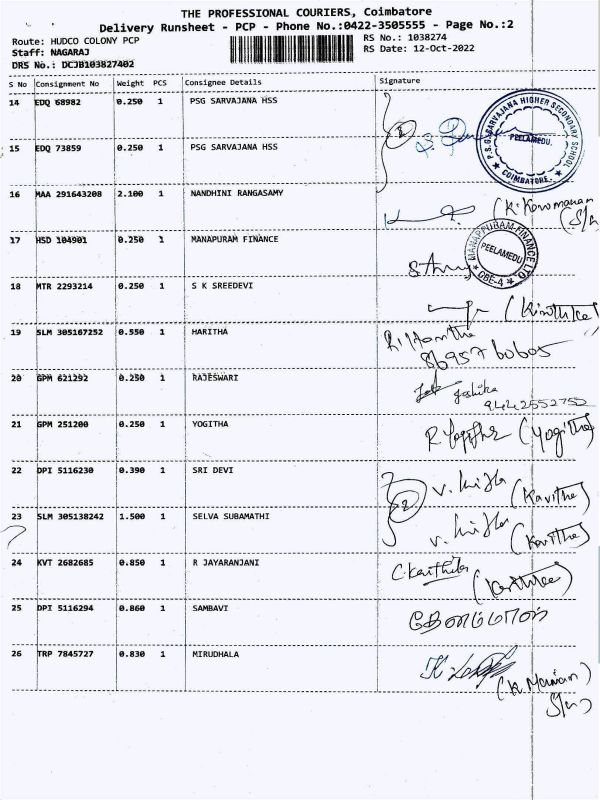 THE PROFESSIONAL COURIERS, Coimbatore
Delivery Runsheet - PCP - Phone No.:0422-3505555 - Page No.:2
Route: HUDCO COLONY PCP
Staff: NAGARAJ
DRS No.: DCJB103827402
RS No.: 1038274
RS Date: 12-Oct-2022
S No Consignment No Weight PCS Consignee Details Signature
14 EDQ 68982 0.250 1 PSG SARVAJANA HSS
P.S.G. SARVAJANA HIGHER SECONDARY SCHOOL
PEELAMEDU.
COIMBATORE.
15 EDQ 73859 0.250 1 PSG SARVAJANA HSS
16 MAA 291643208 2.100 1 NANDHINI RANGASAMY
(S/o)
17 HSD 104901 0.250 1 MANAPURAM FINANCE
MANAPPURAM FINANCE LTD
PEELAMEDU
CBE-4
18 MTR 2293214 0.250 1 S K SREEDEVI
19 SLM 305167252 0.550 1 HARITHA
R. Haritha
20 GPM 621292 0.250 1 RAJESWARI
9442552752
21 GPM 251200 0.250 1 YOGITHA
(Yogitha)
22 DPI 5116230 0.390 1 SRI DEVI
2
(Kavitha)
23 SLM 305138242 1.500 1 SELVA SUBAMATHI
(Kavitha)
24 KVT 2682685 0.850 1 R JAYARANJANI
25 DPI 5116294 0.860 1 SAMBAVI
26 TRP 7845727 0.830 1 MIRUDHALA